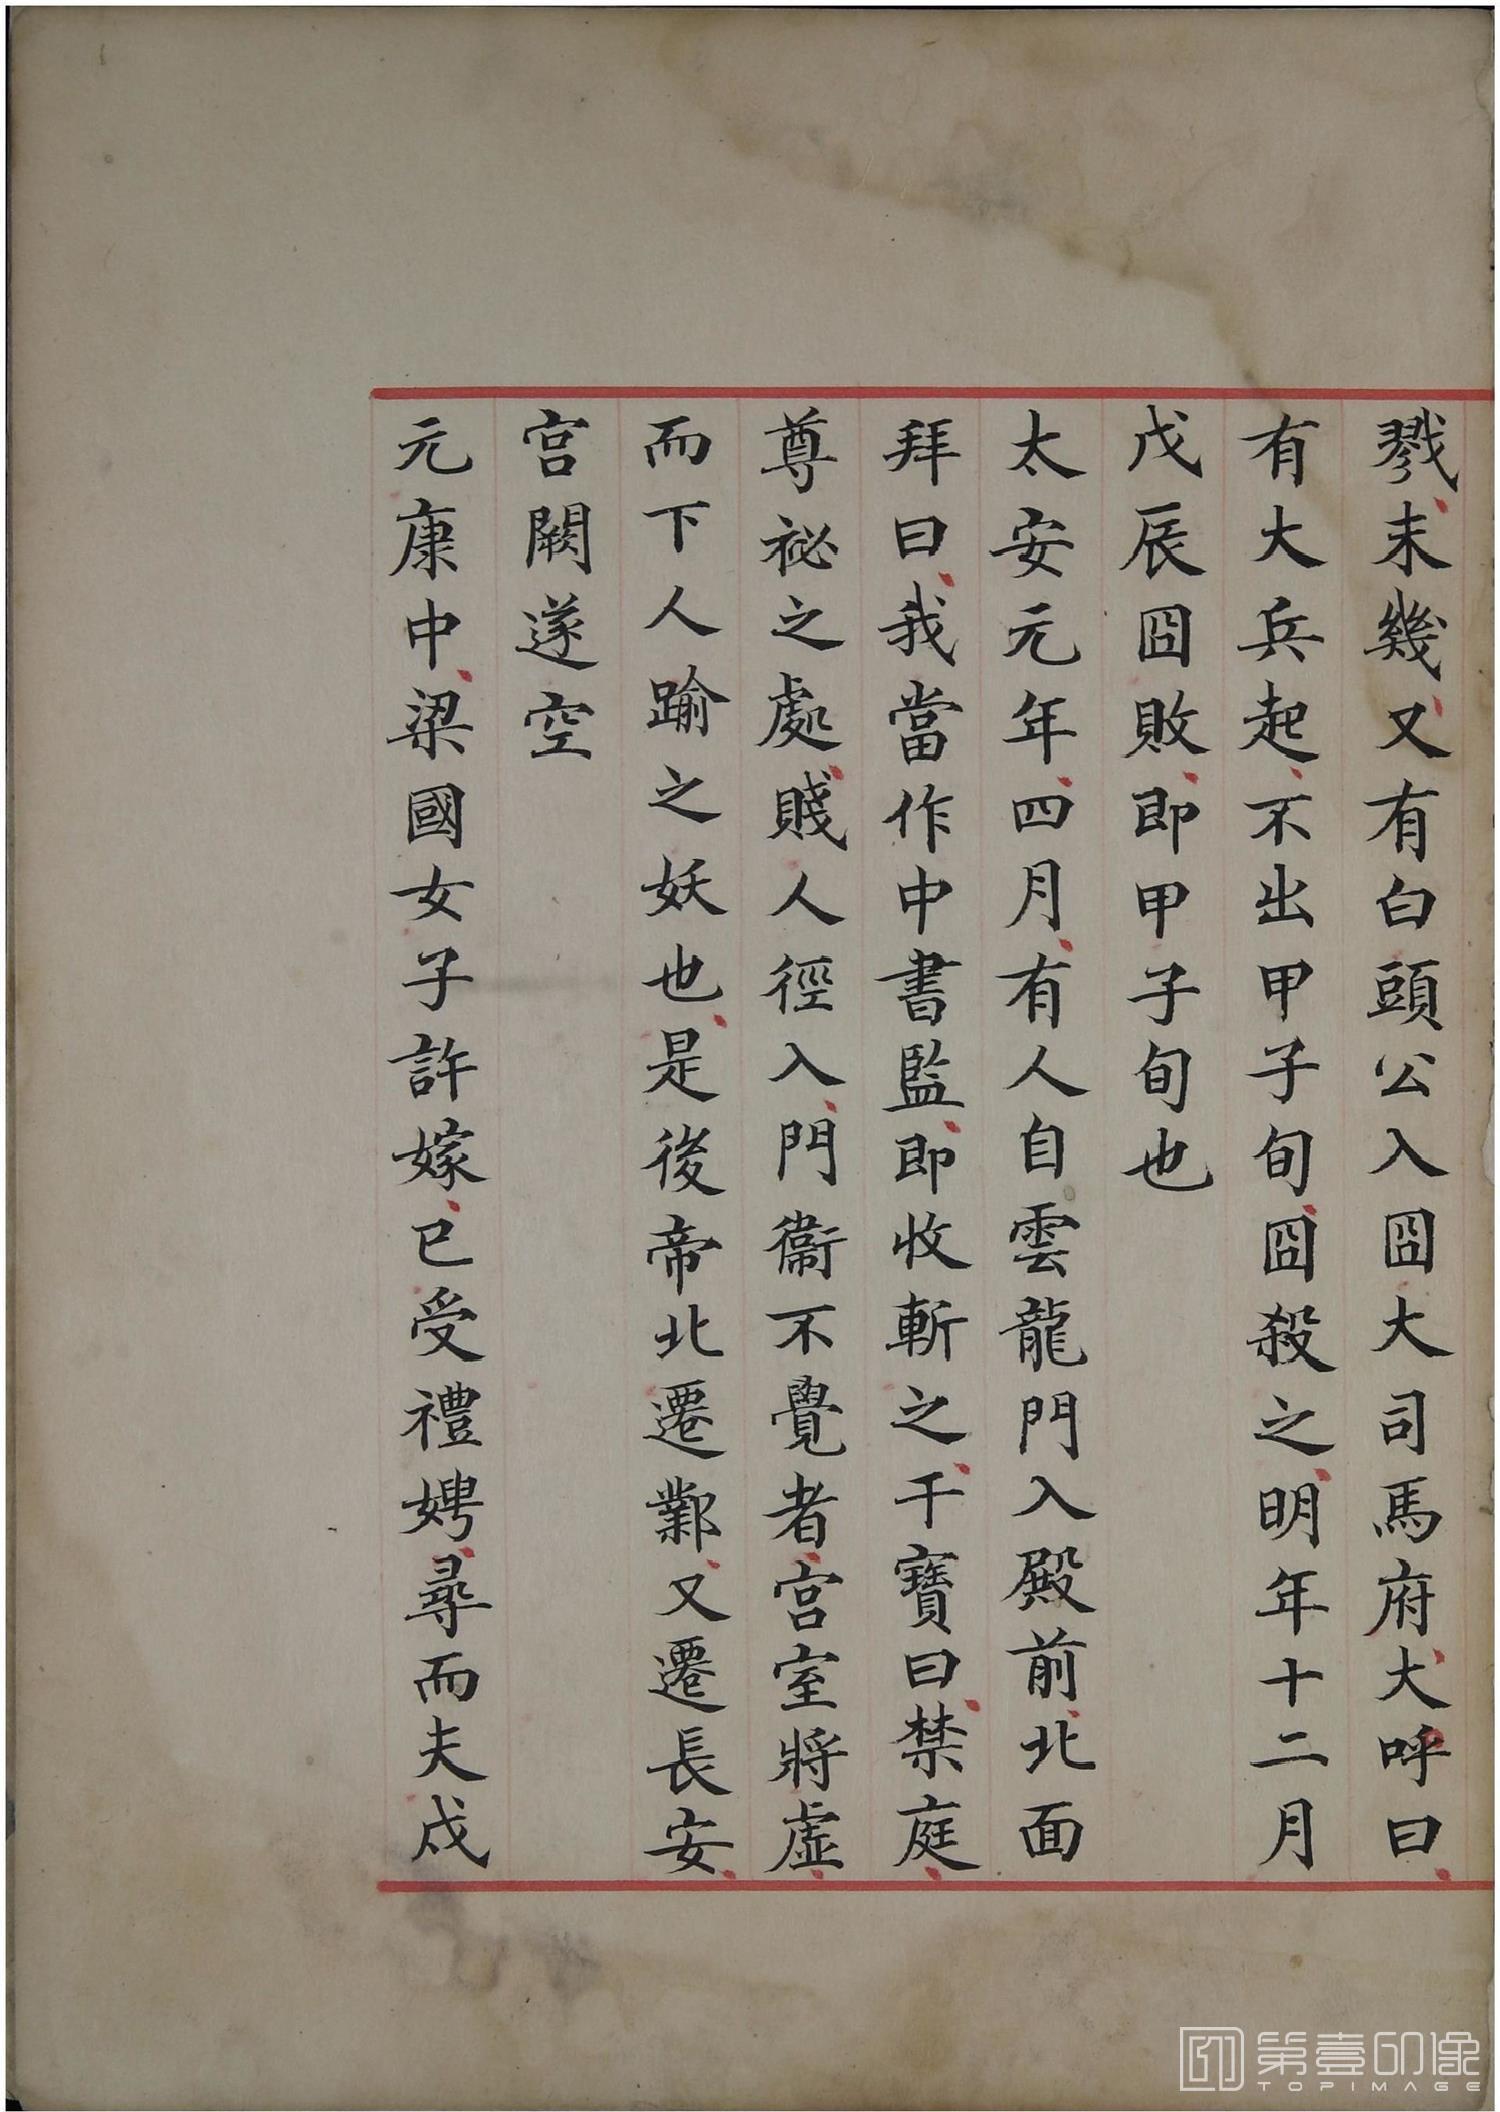 戮末幾又有白頭公入囧大司馬府大呼曰
有大兵起不出甲子旬囧殺之明年十二月
戊辰囧敗即甲子旬也
太安元年四月有人自雲龍門入殿前北面
拜曰我當作中書監即收斬之干寶曰禁庭
尊祕之處賤人徑入門衞不覺者宮室將虛
而下人踰之妖也是後帝北遷鄴又遷長安
宮闕遂空
元康中梁國女子許嫁已受禮娉尋而夫戍
第壹印像
TOPIMAGE